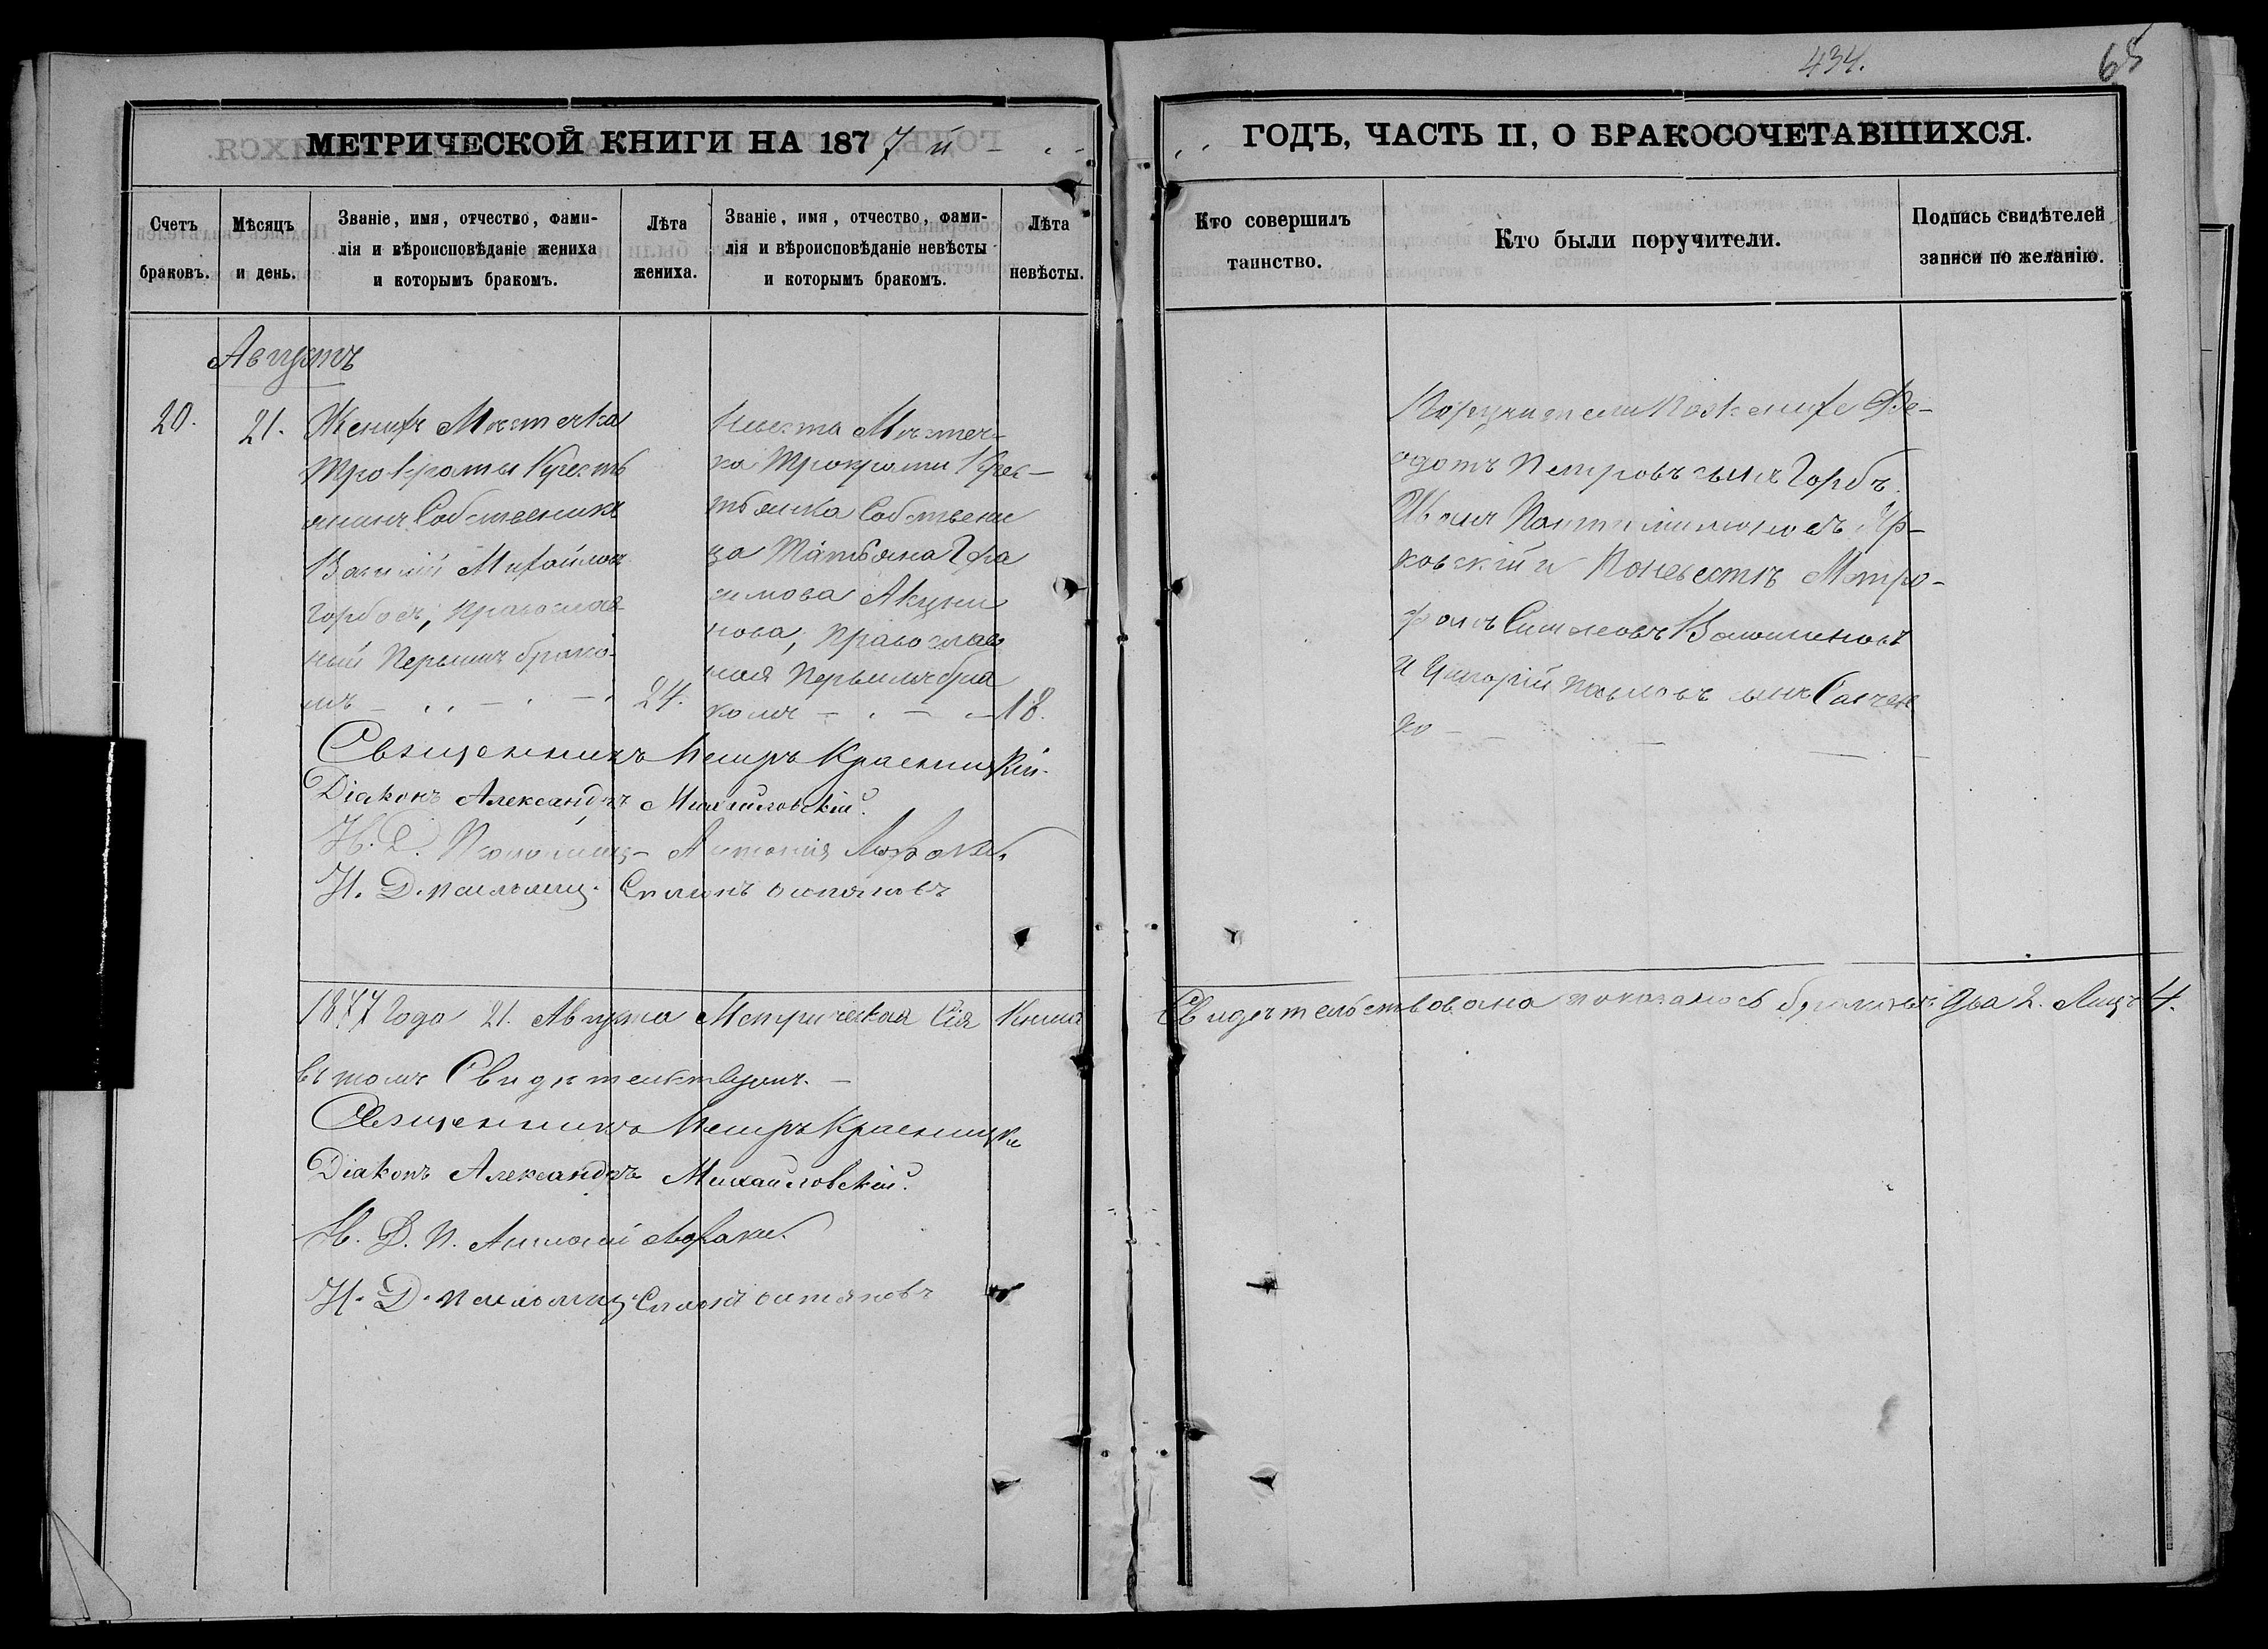 434.
65
МЕТРИЧЕСКОЙ КНИГИ НА 1877 й
ГОДЪ, ЧАСТЬ II, О БРАКОСОЧЕТАВШИХСЯ.
Счетъ браковъ.
Мѣсяцъ и день.
Званіе, имя, отчество, фами-
лія и вѣроисповѣданіе жениха
и которымъ бракомъ.
Лѣта жениха.
Званіе, имя, отчество, фами-
лія и вѣроисповѣданіе невѣсты
и которымъ бракомъ.
Лѣта невѣсты.
Кто совершилъ таинство.
Кто были поручители.
Подпись свидѣтелей
записи по желанію.
Августъ
20.
21.
Женихъ Мѣстечка
Трократы Кресть
янинъ Собственикъ
Василій Михайловъ
Горбовъ, Православ
ный Первымъ брако
мъ
24.
Невѣста Мѣстеч-
ка Трократи Крес-
тьянка Собствени
ца Татьяна Гера
симова Акули
нова, Православ
ная Первымъ бра
комъ
18.
Поручители По женихе Фе-
одотъ Петровъ сынъ Горбъ
Иванъ
ковскій и По невестѣ Митро-
фанъ
и Григорій Павловъ сынъ
ко
Священникъ Петръ Красницкій.
Діаконъ Александръ Михайловскій.
И. Д. Псаломщ.
И. Д. псаломщ.
1877 Года 21. Августа Метрическая Сія Книга
Свидетельствована показаносъ браковъ два 2. Лицъ 4.
въ томъ Свидетельствуемъ.
Священникъ Петръ Красницкій
Діаконъ Александръ Михайловскій.
И. Д. П.
И. Д. псаломщ.